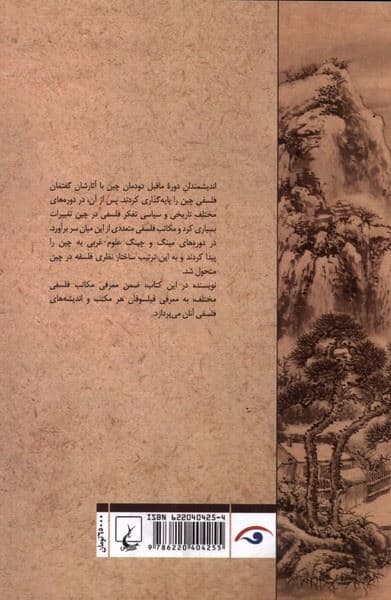 اندیشمندان دورهٔ ماقبل دودمان چین با آثارشان گفتمان
فلسفی چین را پایه‌گذاری کردند. پس از آن، در دوره‌های
مختلف تاریخی و سیاسی تفکر فلسفی در چین تغییرات
بسیاری کرد و مکاتب فلسفی متعددی از این میان سر برآورد.
در دوره‌های مینگ و چینگ علوم غربی به چین را
پیدا کردند و به این ترتیب ساختار نظری فلسفه در چین
متحول شد.
نویسنده در این کتاب، ضمن معرفی مکاتب فلسفی
مختلف، به معرفی فیلسوفان هر مکتب و اندیشه‌های
فلسفی آنان می‌پردازد.
ISBN 622040425-4
9 786220 404255
۶۵۰۰۰ تومان